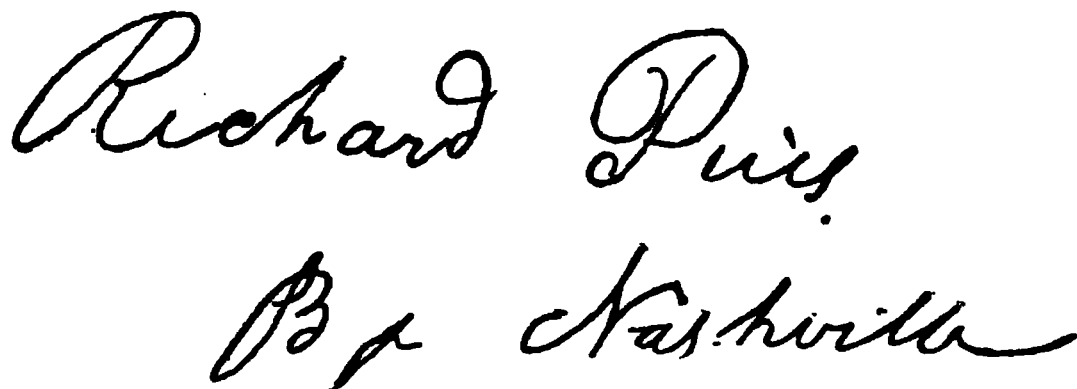 Richard Pius.
Bp Nashville